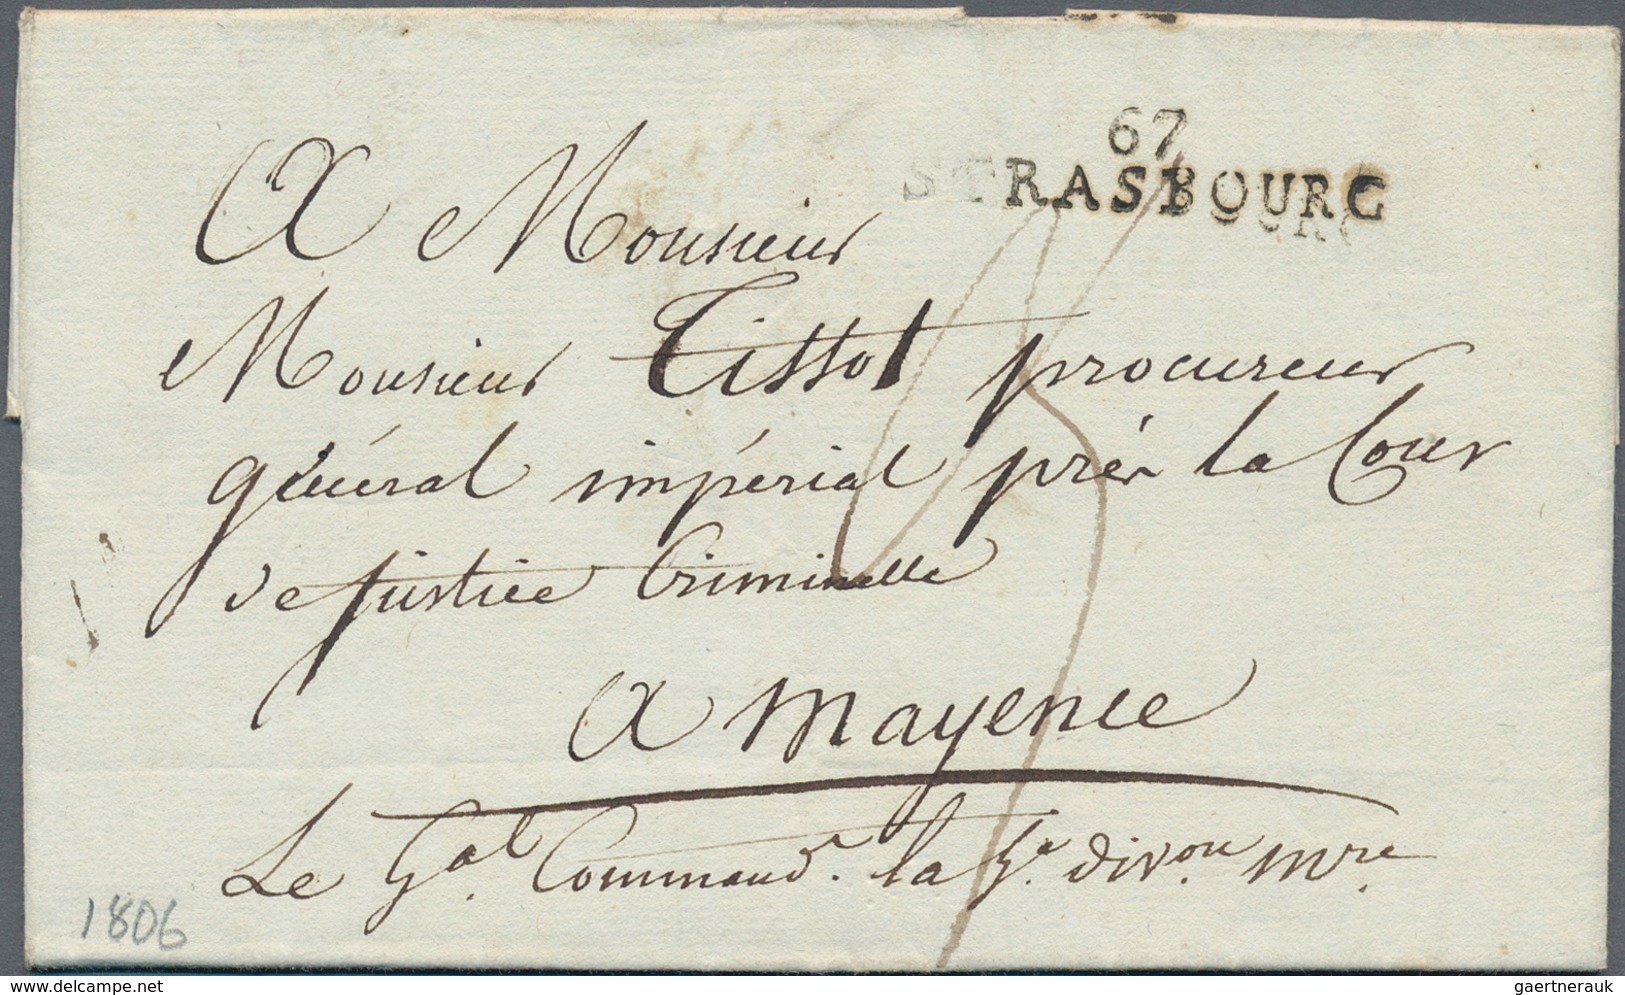 67
STRASBOURG
A Monsieur
Monsieur Tissot procureur
général impérial près la Cour
de justice Criminelle
A Mayence
Le Gal. Commandr. la 5e. divon. mre.
1806
delcampe.net
gaertnerauk